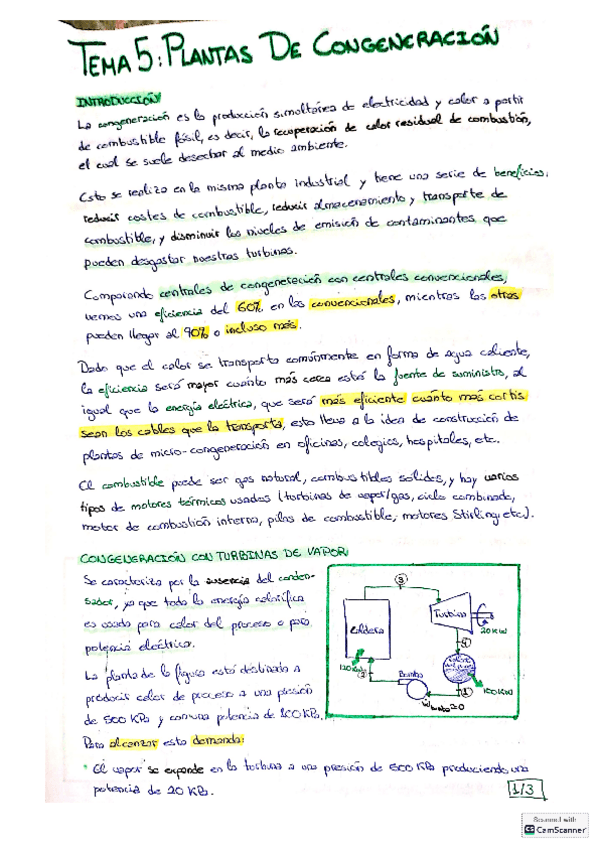 TEMA 5: PLANTAS DE CONGENERACIÓN
INTRODUCCIÓN
La congeneración es la producción simultánea de electricidad y calor a partir
de combustible fósil, es decir, la recuperación de calor residual de combustión,
el cual se suele desechar al medio ambiente.
Esto se realiza en la misma planta industrial y tiene una serie de beneficios:
reducir costes de combustible, reducir almacenamiento y transporte de
combustible, y disminuir los niveles de emisión de contaminantes que
pueden desgastar nuestras turbinas.
Comparando centrales de congeneración con centrales convencionales,
vemos una eficiencia del 60% en las convencionales, mientras las otras
pueden llegar al 90% o incluso más.
Dado que el calor se transporta comúnmente en forma de agua caliente,
la eficiencia será mayor cuánto más cerca está la fuente de suministro, al
igual que la energía eléctrica, que será más eficiente cuánto más cortis
sean los cables que la transporta, esto lleva a la idea de construcción de
plantas de micro-congeneración en oficinas, colegios, hospitales, etc.
El combustible puede ser gas natural, combustibles solidos, y hay varios
tipos de motores térmicos usados (turbinas de vapor/gas, ciclo combinado,
motor de combustión interna, pilas de combustible, motores Stirling etc).
CONGENERACIÓN CON TURBINAS DE VAPOR
Se caracteriza por la ausencia del conden-
sador, ya que toda la energía calorífica
es usada para calor del proceso o para
potencia eléctrica.
La planta de la figura está destinada a
producir calor de proceso a una presión
de 500 KPa y con una potencia de 100 KPa.
Para alcanzar esta demanda:
3
Caldera
Turbina
20 KW
4
120 KW
2
Bomba
1
100 KW
· El vapor se expande en la turbina a una presión de 500 KPa produciendo una
potencia de 20 KPa.
1/3
Scanned with
CS CamScanner